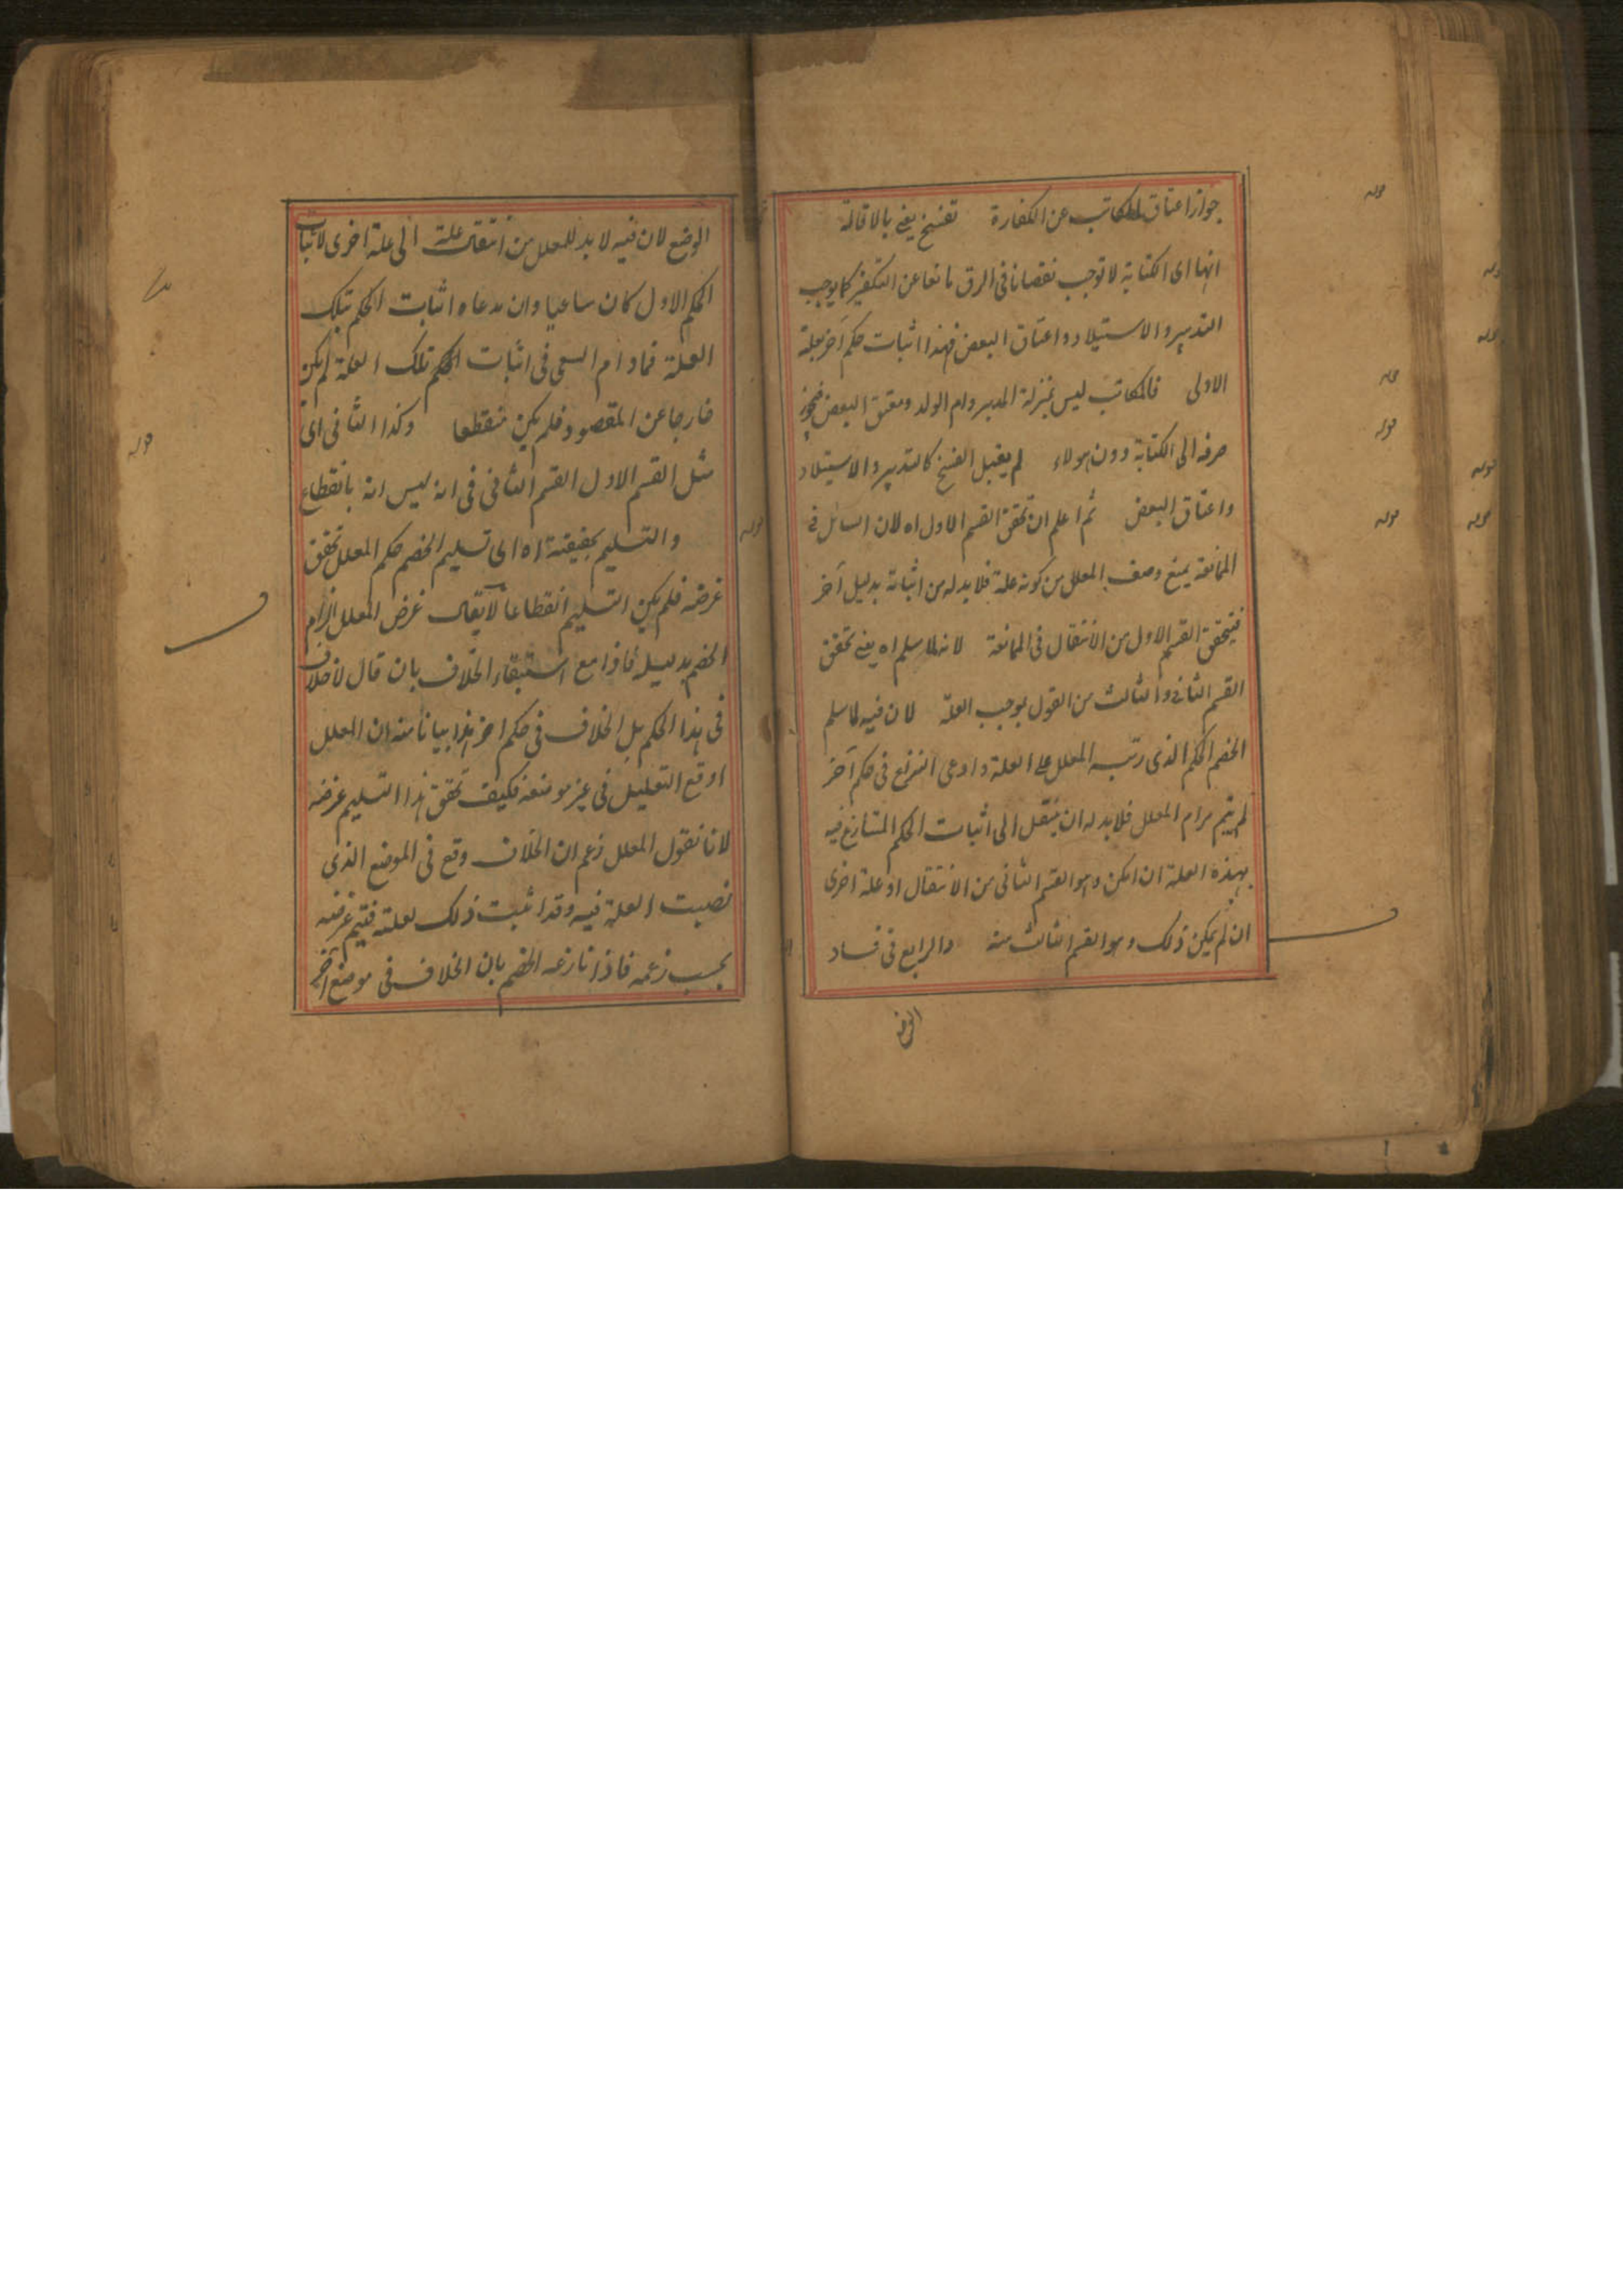 جواز اعتاق المكاتب عن الكفارة تفسخ يعني بالاقالة
انها اى الكتابة لا توجب نقصانا فى الرق مانعا عن التكفير كما يوجب
التدبير والاستيلاد واعتاق البعض فهذا اثبات حكم آخر بعلة
الاولى فالمكاتب ليس بمنزلة المدبر وام الولد ومعتق البعض فيجوز
صرفه الى الكتابة دون هولاء لم يقبل الفسخ كالتدبير والاستيلاد
واعتاق البعض ثم اعلم ان تحقق القسم الاول اه لان السائل فى
الممانعة يمنع وصف المعلل من كونه علة فلا بد له من اثباته بدليل آخر
فيتحقق القسم الاول من الانتقال فى الممانعة لانه لما سلم اه يعنى تحقق
القسم الثانى والثالث من القول بموجب العلة لان فيه لما سلم
الخصم الحكم الذى رتبه المعلل على العلة وادعى النزاع فى حكم آخر
لم يتم مرام المعلل فلا بد له ان ينتقل الى اثبات الحكم المتنازع فيه
بهذه العلة ان امكن وهو القسم الثانى من الانتقال او علة اخرى
ان لم يمكن ذلك وهو القسم الثالث منه والرابع فى فساد
الوضع
الوضع لان فيه لا بد للمعلل من انتقال علة الى علة اخرى لاثبات
الحكم الاول كان ساعيا وان مدعاه اثبات الحكم بتلك
العلة فما دام السعى فى اثبات الحكم تلك العلة لم يكن
خارجا عن المقصود فلم يكن منقطعا وكذا الثانى اى
مثل القسم الاول القسم الثانى فى انه ليس انه بانقطاع
والتسليم بحقيقته اه اى تسليم الخصم حكم المعلل تحقق
غرضه فلم يكن التسليم انقطاعا لا يقال غرض المعلل الزام
الخصم بدليله فاذا مع استبقاء الخلاف بان قال لا خلاف
فى هذا الحكم بل الخلاف فى حكم اخر هذا بيانا منه ان المعلل
اوقع التعليل فى غير موضعه فكيف تحقق هذا التسليم غرضه
لانا نقول المعلل زعم ان الخلاف وقع فى الموضع الذى
نصبت العلة فيه وقد اثبت ذلك لعلته فيتم غرضه
بحسب زعمه فاذا نازعه الخصم بان الخلاف فى موضع آخر
قوله
قوله
قوله
قوله
قوله
قوله